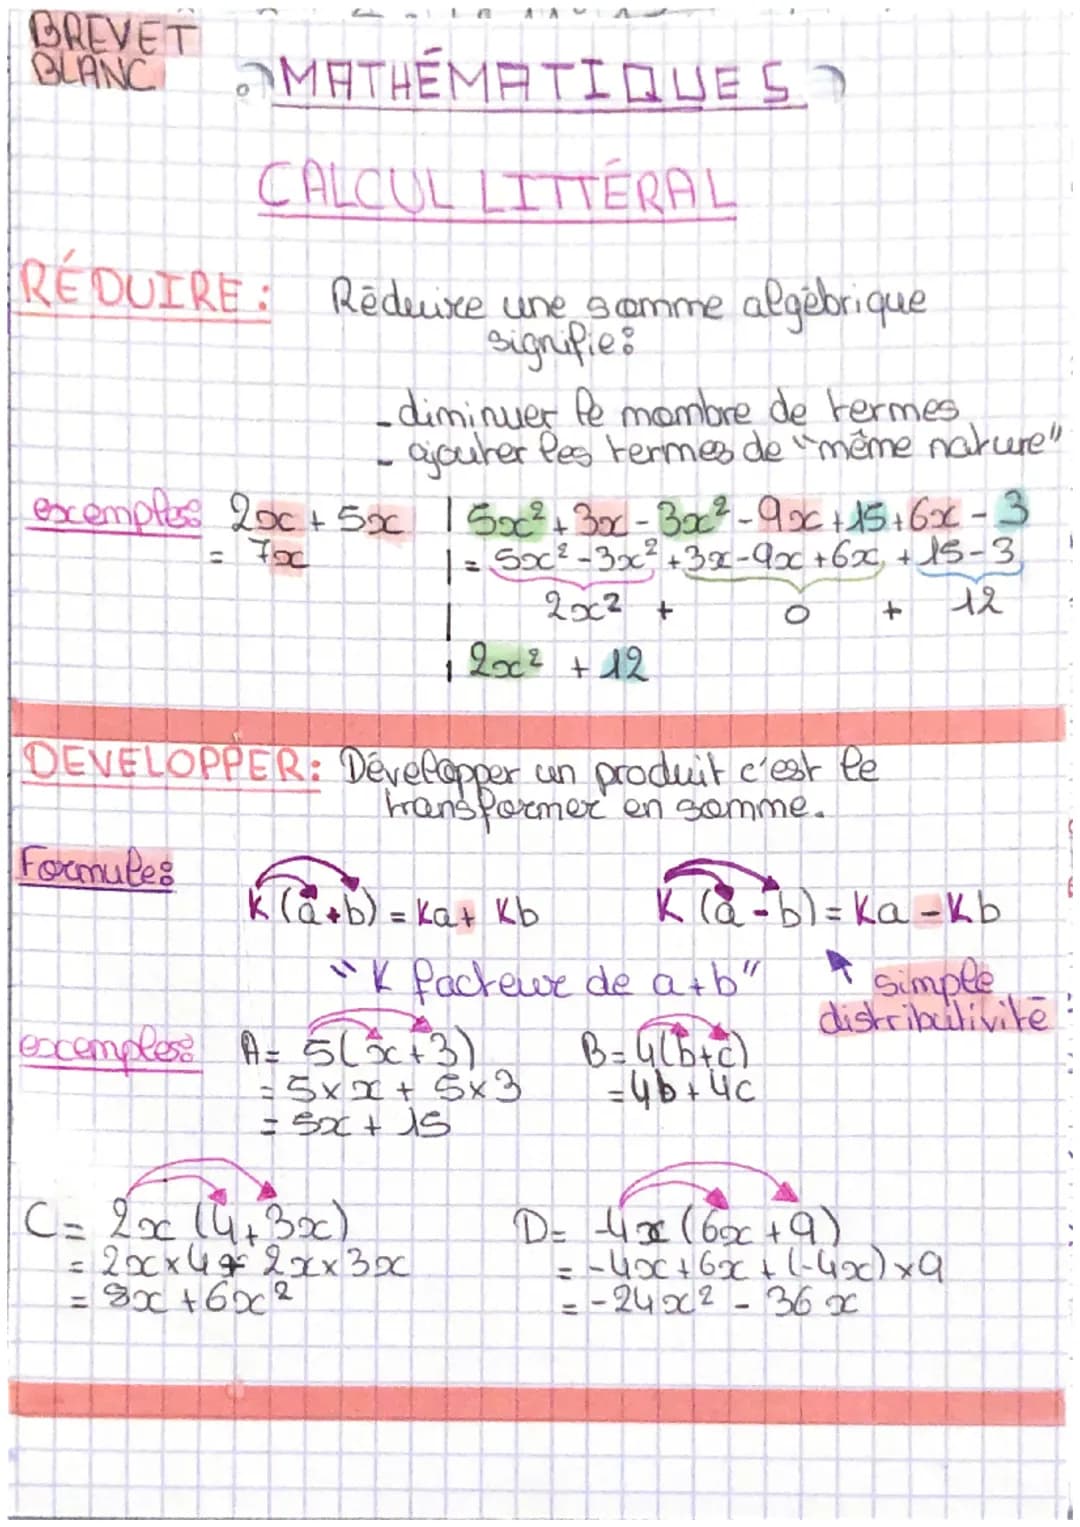 BREVET
BLANC
MATHÉMATIQUES
CALCUL LITTÉRAL
RÉDUIRE : Réduire une somme algébrique
signifie :
- diminuer le nombre de termes
- ajouter les termes de "même nature"
exemples : 2x + 5x | 5x² + 3x - 3x² - 9x + 15 + 6x - 3
= 7x | = 5x² - 3x² + 3x - 9x + 6x + 15 - 3
2x² + 0 + 12
2x² + 12
DEVELOPPER : Développer un produit c'est le
transformer en somme.
Formule :
K (a+b) = Ka + Kb K (a-b) = Ka - Kb
"K facteur de a+b" simple
distributivité
exemples : A = 5(x+3) B = 4(b+c)
= 5 × x + 5 × 3 = 4b + 4c
= 5x + 15
C = 2x (4 + 3x) D = -4x (6x + 9)
= 2x × 4 + 2x × 3x = -4x + 6x + (-4x) × 9
= 8x + 6x² = -24x² - 36x